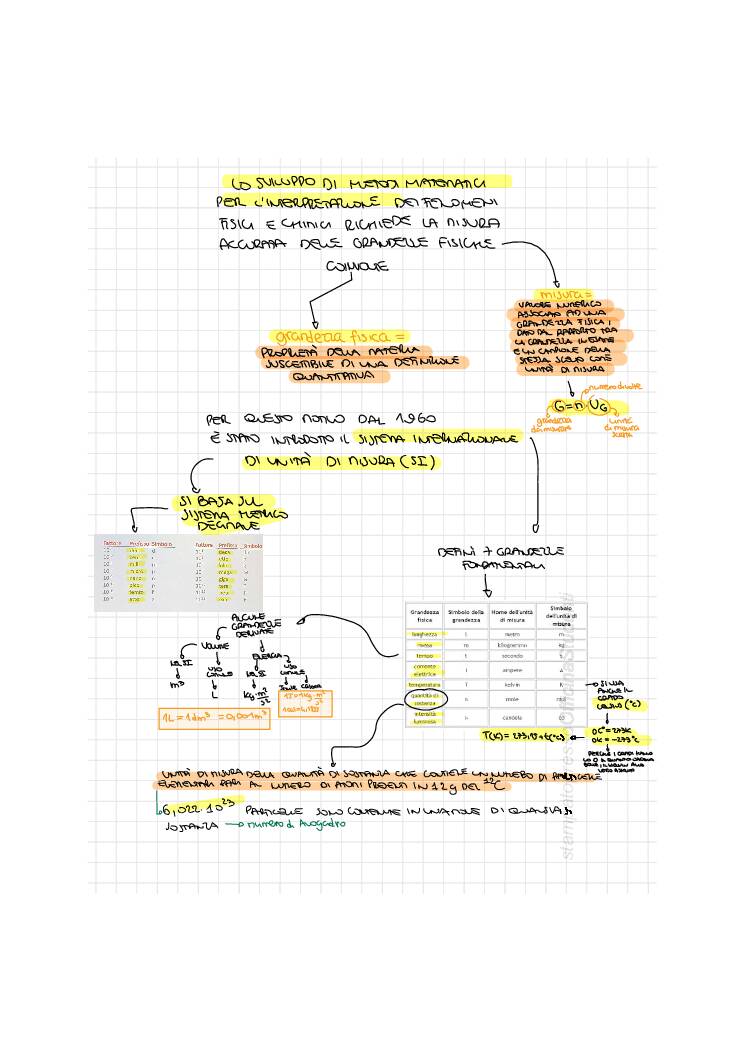 LO SVILUPPO DI METODI MATEMATICI
PER L'INTERPRETAZIONE DEI FENOMENI
FISICI E CHIMICI RICHIEDE LA MISURA
ACCURATA DELLE GRANDEZZE FISICHE
COINVOLTE
misura =
VALORE NUMERICO
ASSOCIATO AD UNA
GRANDEZZA FISICA,
DATO DAL RAPPORTO TRA
LA GRANDEZZA IN ESAME
E UN CAMPIONE DELLA
STESSA SCELTO COME
UNITÀ DI MISURA
grandezza fisica =
PROPRIETÀ DELLA MATERIA
SUSCETTIBILE DI UNA DEFINIZIONE
QUANTITATIVA
numero di volte
G = n UG
grandezza
da misurare
unità
di misura
scelta
PER QUESTO MOTIVO DAL 1960
È STATO INTRODOTTO IL SISTEMA INTERNAZIONALE
DI UNITÀ DI MISURA (SI)
SI BASA SUL
SISTEMA METRICO
DECIMALE
Fattore Prefisso Simbolo Fattore Prefisso Simbolo
DEFINÌ 7 GRANDEZZE
FONDAMENTALI
Grandezza fisica Simbolo della grandezza Nome dell'unità di misura Simbolo dell'unità di misura
lunghezza l metro m
massa m kilogrammo kg
tempo t secondo s
corrente elettrica I ampere A
temperatura T kelvin K
quantità di sostanza n mole mol
intensità luminosa candela cd
ALCUNE
GRANDEZZE
DERIVATE
VOLUME
ENERGIA
NEL SI
USO COMUNE
m³
L
NEL SI
USO COMUNE
kg m²/s²
Joule Caloria
1J = 1kg · m²/s²
1L = 1dm³ = 0,001m³
SI USA
ANCHE IL
GRADO
CELSIUS (°C)
0°C = 273K
0K = -273°C
T(K) = 273,15 + t(°C)
UNITÀ DI MISURA DELLA QUANTITÀ DI SOSTANZA CHE CONTIENE UN NUMERO DI PARTICELLE
ELEMENTARI PARI AL NUMERO DI ATOMI PRESENTI IN 12g DEL ¹²C
6,022 · 10²³ PARTICELLE SONO CONTENUTE IN UNA MOLE DI QUALSIASI
SOSTANZA → numero di Avogadro